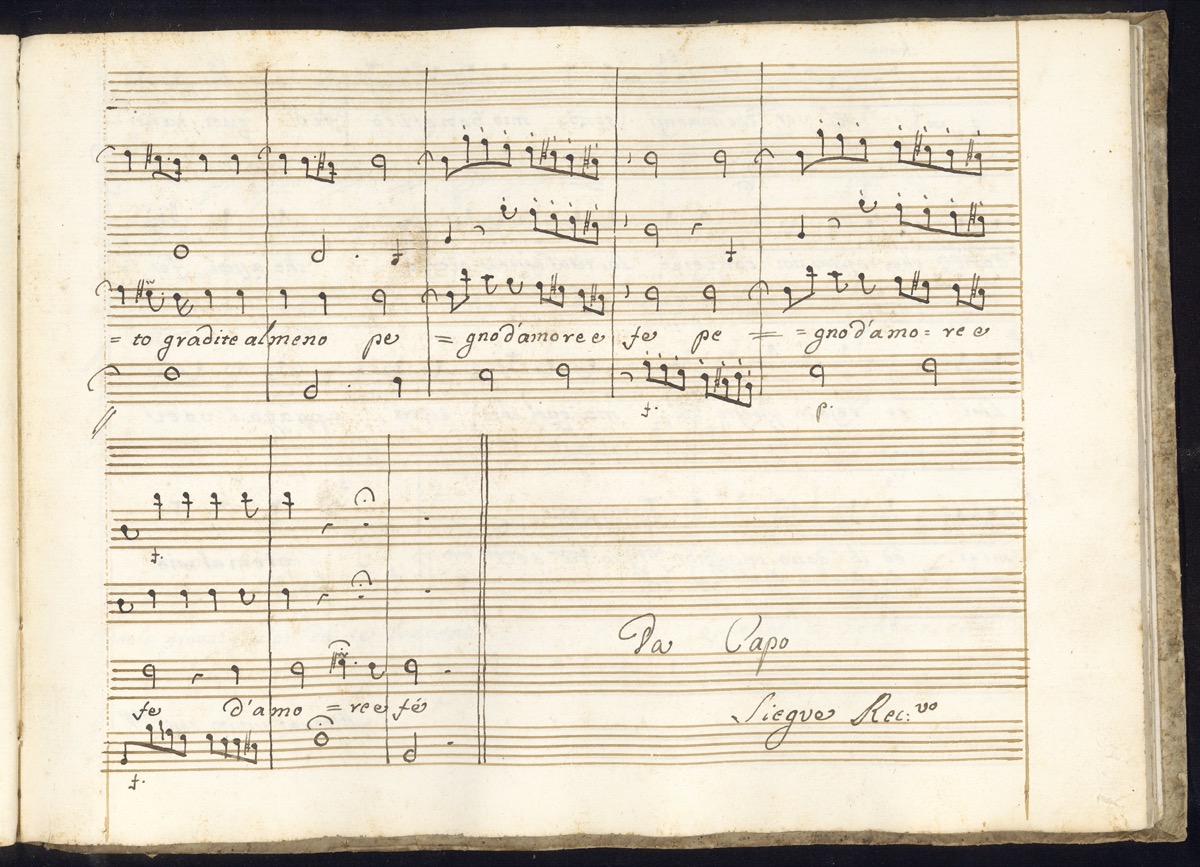 = to gradite almeno pe = gno d'amore e fe pe = = gno d'amo = re e
f. p.
f.
fe d'amo = re e fé
f.
Da Capo
Siegue Rec:vo